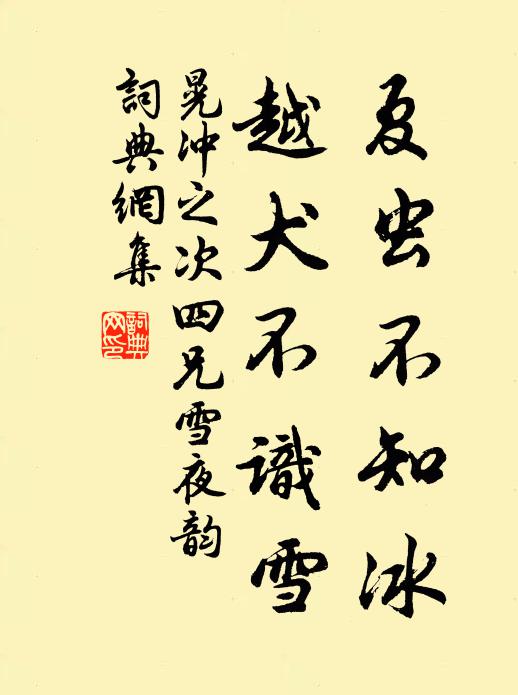 夏虫不知冰
越犬不识雪
晃冲之次四兄雪夜韵
詞典網集
詞典
网印